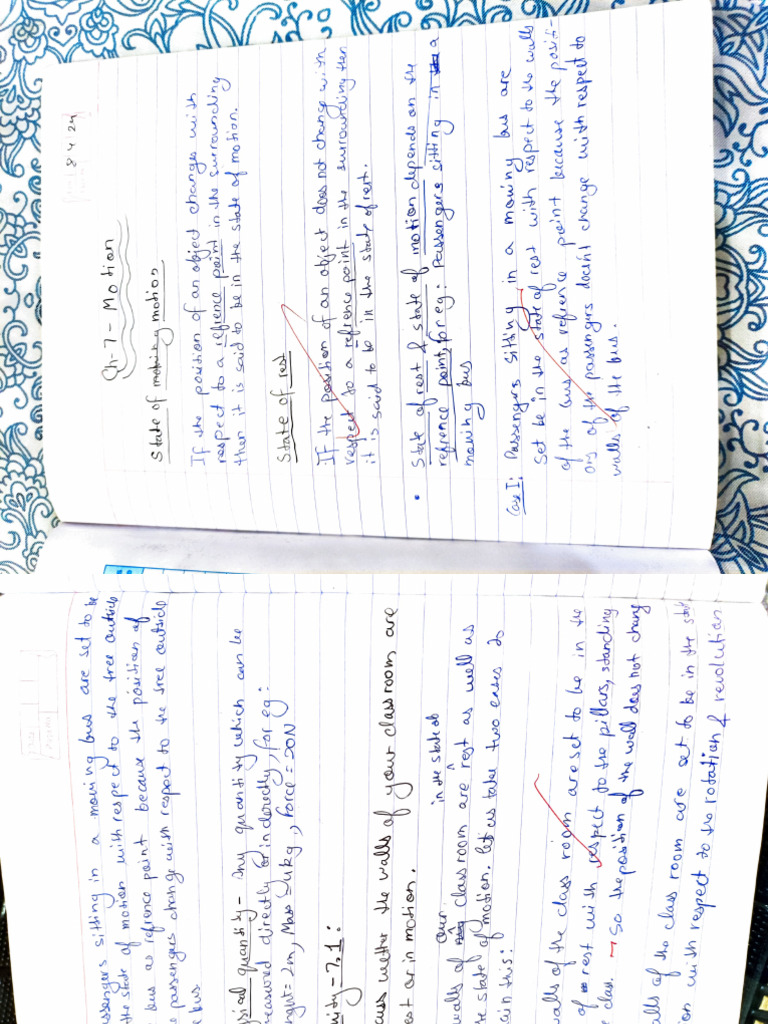 8.4.24
Ch-7 - Motion
State of motion
If the position of an object changes with
respect to a refrence point in the surrounding
then it is said to be in the state of motion.
State of rest
If the position of an object does not change with
respect to a refrence point in the surrounding then
it is said to be in the state of rest.
• State of rest & state of motion depends on the
refrence point, for eg: Passengers sitting in a
moving bus
Case I: Passengers sitting in a moving bus are
Set be in the state of rest with respect to the walls
of the bus as refrence point because the positi-
ons of the passengers doesn't change with respect to
walls of the bus.
ssengers sitting in a moving bus are set to be
the state of motion with respect to the tree outside
bus as refrence point because the position of
e passengers change with respect to the tree outside
e bus
sical quantity - Any quantity which can be
easured directly or inderectly, for eg:
hght = 2m, Mass = 4kg, Force = 20N
vity - 7.1:
cuss wether the walls of your classroom are
est or in motion.
walls of our class room are in the state of rest as well as
the state of motion. let us take two cases to
ain this:
walls of the class room are set to be in the
of rest with respect to the pillars, standing
e class. → So the position of the wall does not chang
alls of the class room are set to be in the stat
on with respect to the rotation & revolution